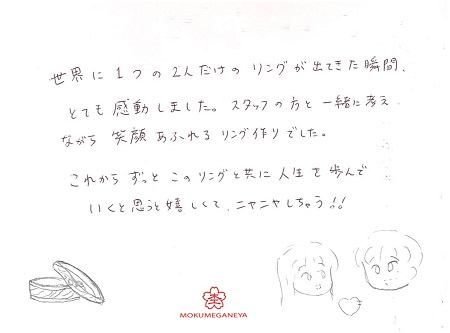 世界に1つの2人だけのリングが出てきた瞬間、
とても感動しました。スタッフの方と一緒に考え
ながら笑顔あふれるリング作りでした。
これからずっとこのリングと共に人生を歩んで
いくと思うと嬉しくて、ニヤニヤしちゃう!!
杢
MOKUMEGANEYA